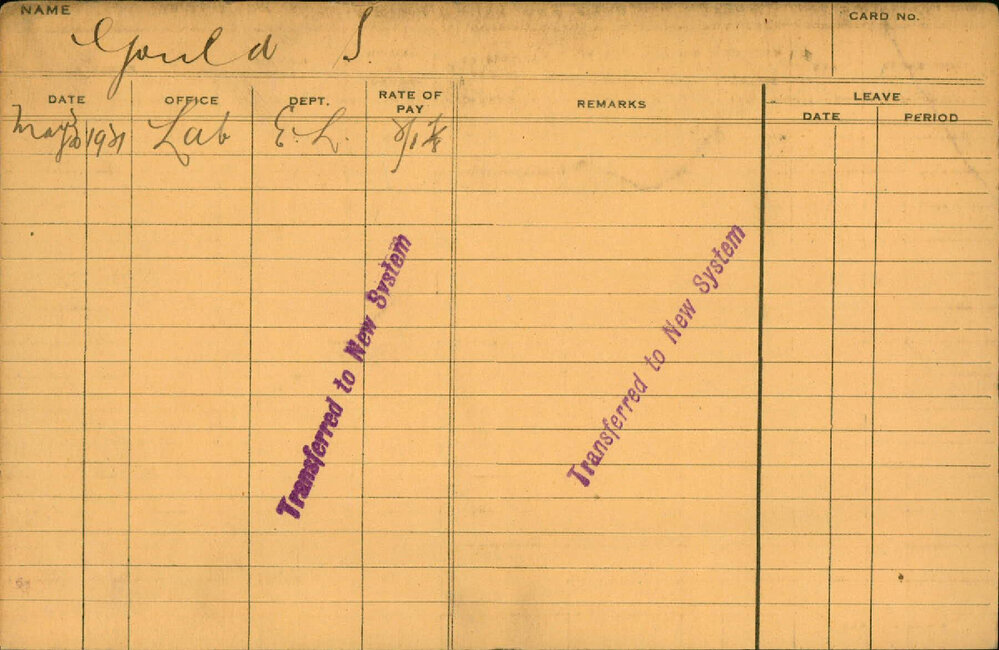 NAME
CARD No.
Gould S.
DATE OFFICE DEPT. RATE OF PAY REMARKS LEAVE
DATE PERIOD
May 1921 Lab E. L.
Transferred to New System
Transferred to New System